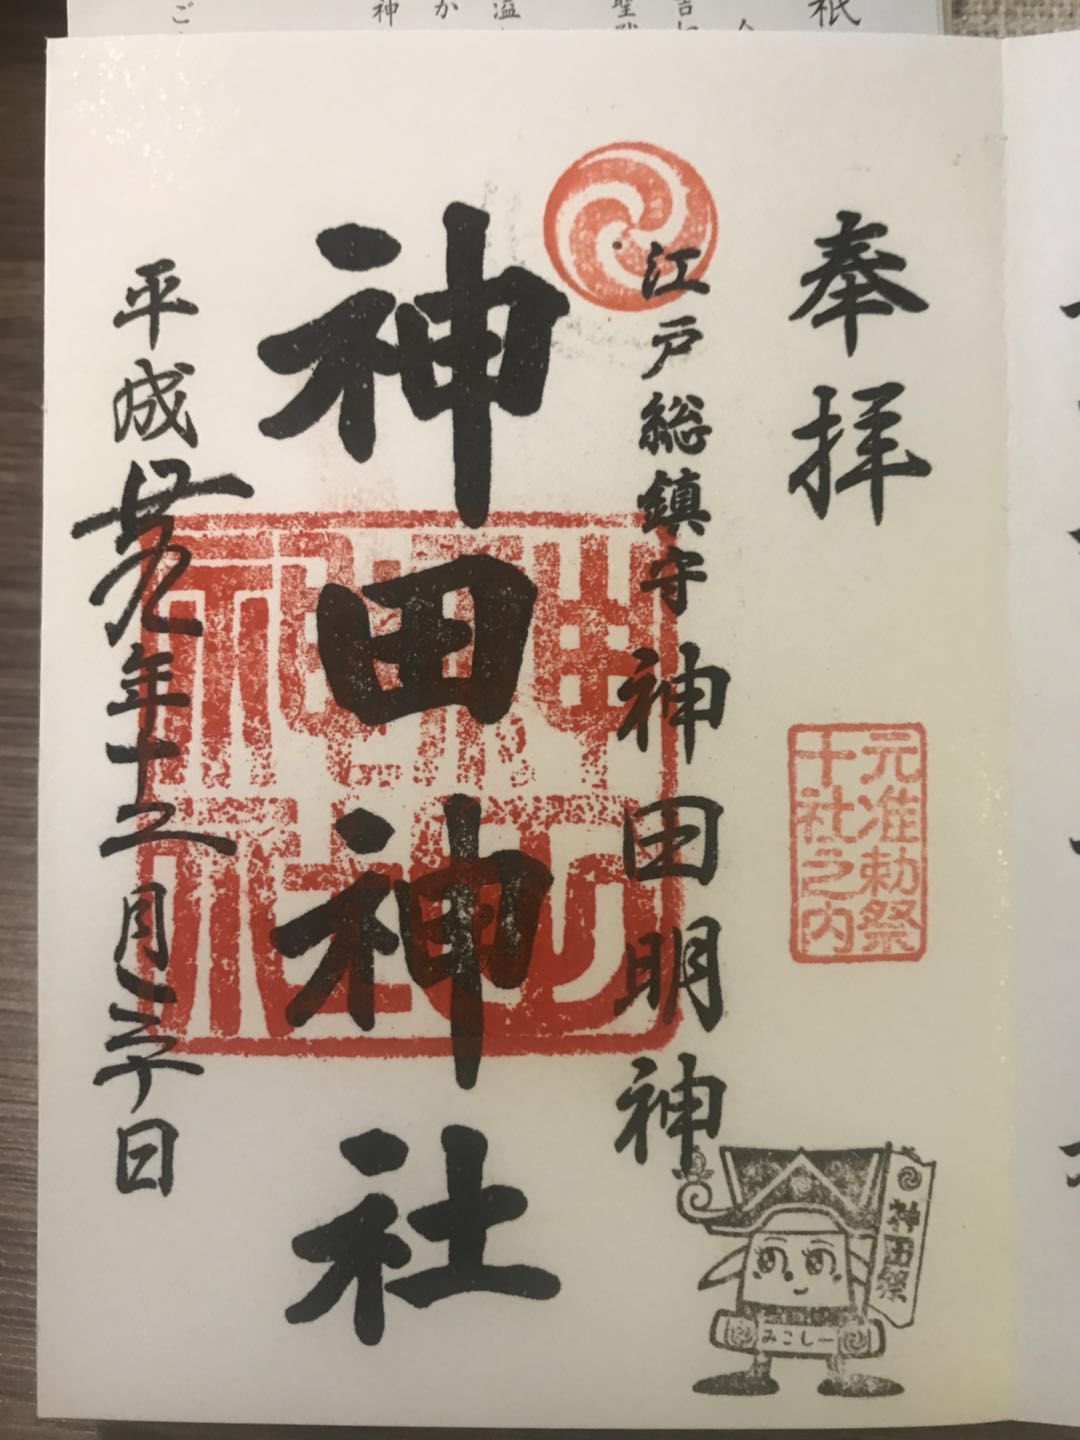 奉拝
元准勅祭
十社之内
江戸総鎮守 神田明神
神田神社
平成廿九年十二月三日
神田祭
みこしー
祇